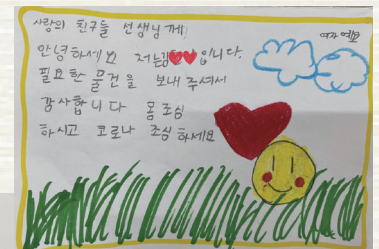 사랑의 친구들 선생님께
여자예요
안녕하세요 저는김❤❤입니다.
필요한 물건을 보내 주셔서
감사합니다 몸 조심
하시고 코로나 조심 하세요